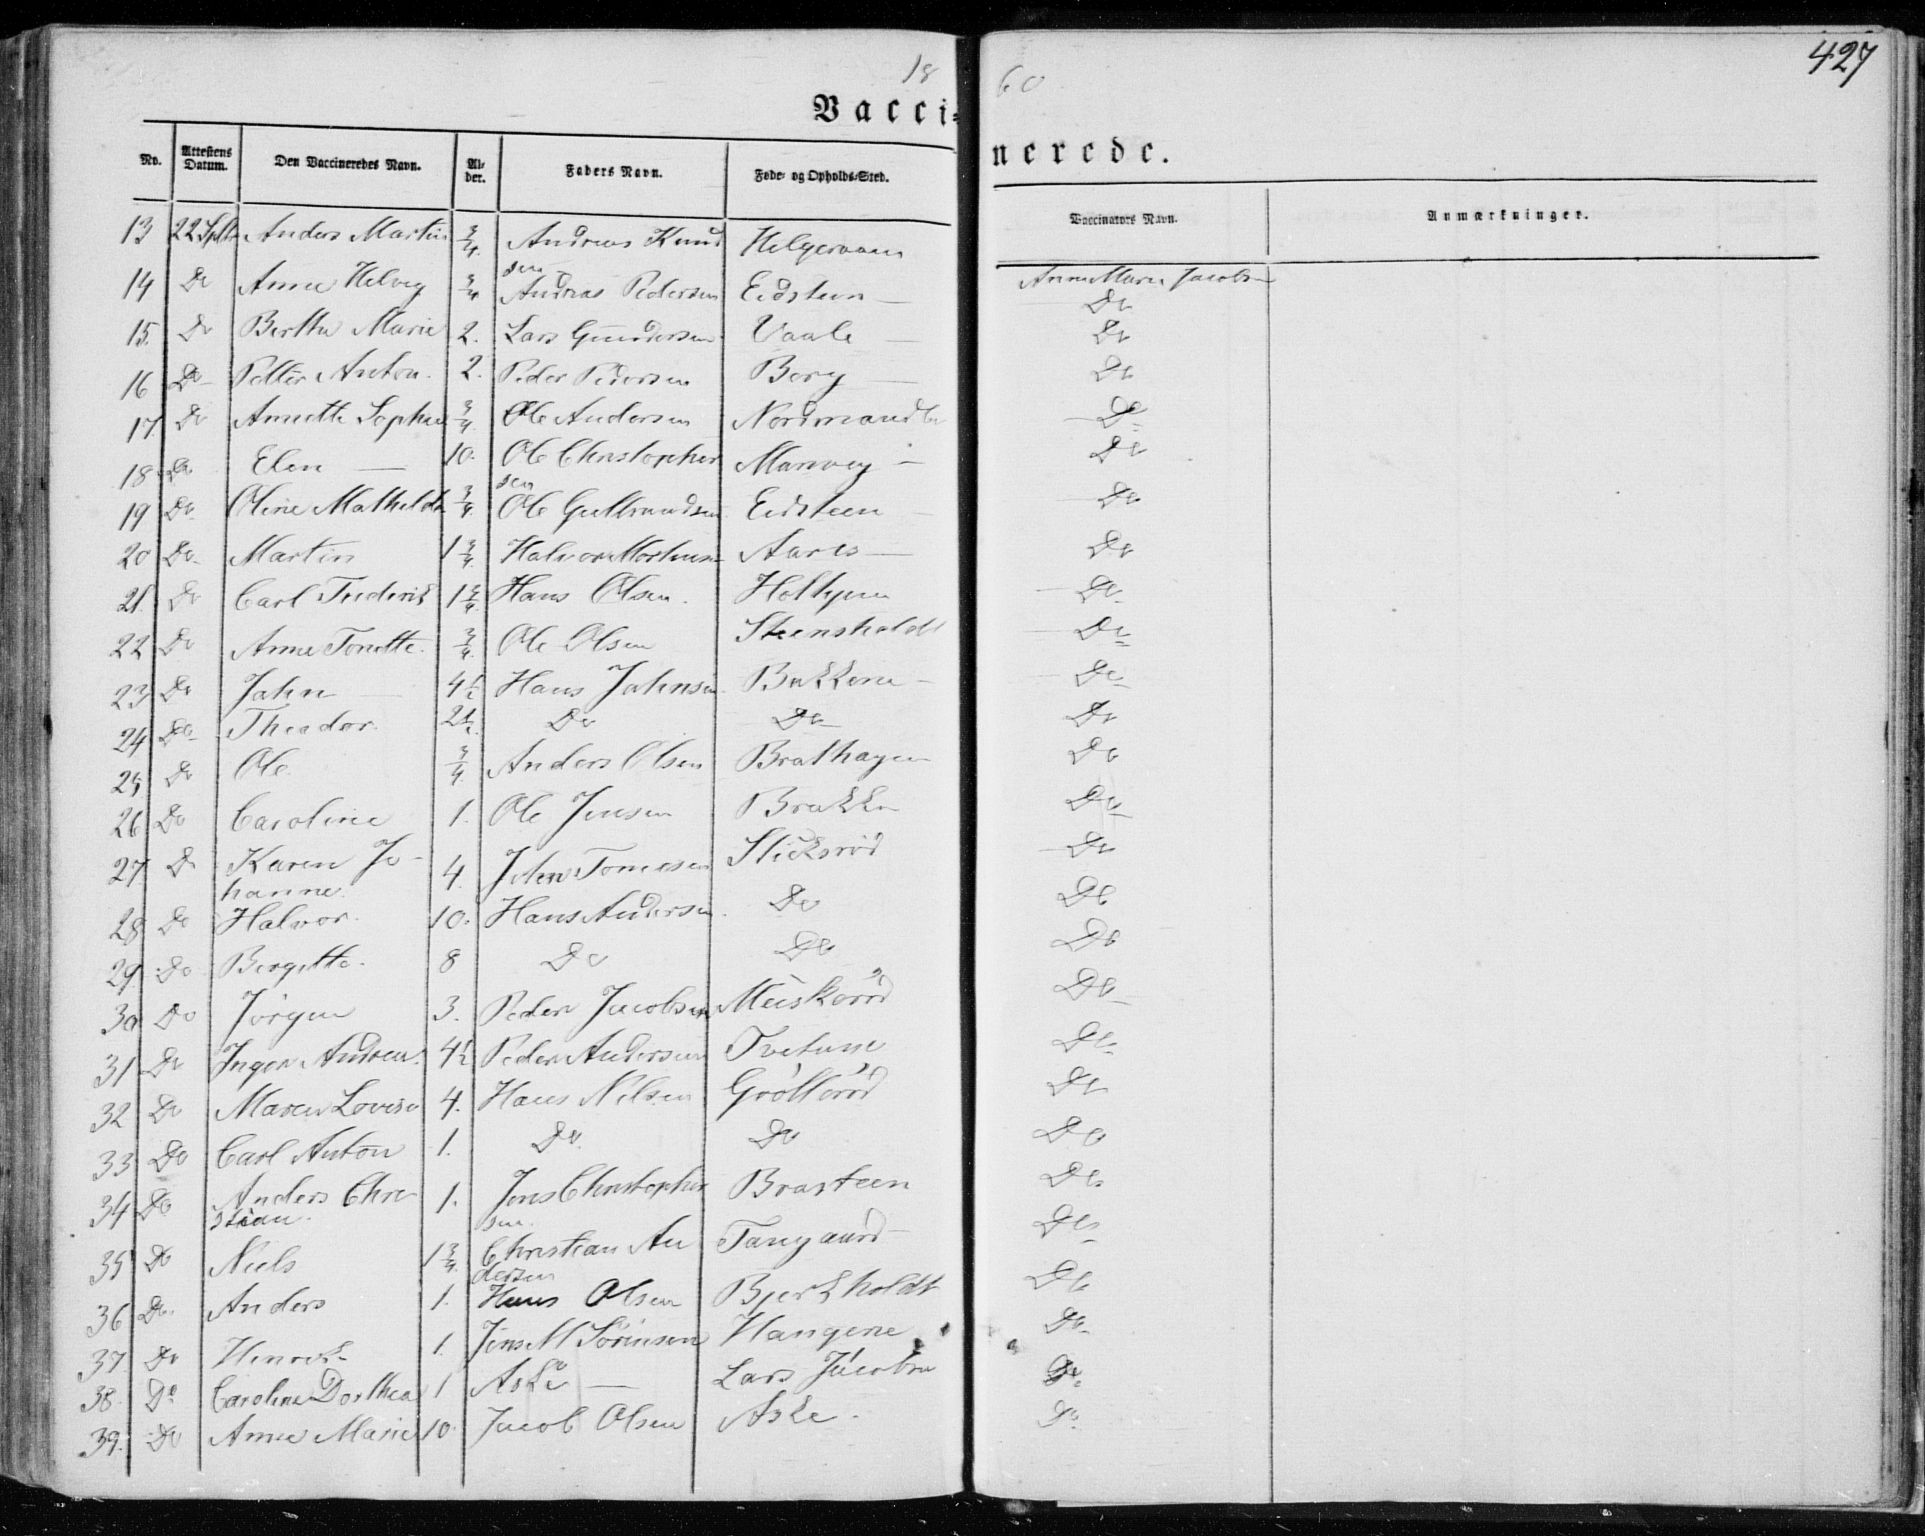 18 60
427
Vacci=
nerede.
No. Attestens Datum. Den Vaccineredes Navn. Al-der. Faders Navn. Føde- og Opholds-Sted. Vaccinators Navn. Anmærkninger.
13 22 Sptbr Anders Martin 3/4 Andreas Knud Helgeroaen Anne Marie Jacobsen
sen
14 Do Anne Helvig 3/4 Andreas Pedersen Eidsteen — Do
15. Do Berthe Marie 2. Lars Gundersen Vaale — Do
16 Do Petter Anton. 2. Peder Pedersen Berg — Do
17 Do Annette Sophie 3/4 Ole Andersen Do
18 Do Elen — 10. Ole Christopher Manvig — Do
sen
19 Do Oline Mathilde 3/4 Ole Gulbrandsen Eidsteen — Do
20 Do Martin 1 3/4 Halvor Mathisen Aares — Do
21. Do Carl Frederik 1 3/4 Hans Olsen. Holtgem Do
22 Do Anne Tonette. 3/4 Ole Olsen Steensholdt Do
23 Do Jahn — 4 1/2 Hans Jahnsen Bakkene — Do
24 Do Theodor. 2 1/2 Do Do Do
25 Do Ole 3/4 Anders Olsen Brathagen Do
26 Do Caroline 1. Ole Jensen Brekke Do
27 Do Karen Jo- 4. John Tomesen Sticksrød Do
hanne.
28 Do Halvor. 10. Hans Andersen. Do Do
29 Do Bergitte. 8 Do Do Do
30 Do Jørgen 3. Peder Jacobsen Do
31 Do Inger Andrea. 4 1/2 Peder Andersen Tvetene Do
32 Do Maren Lovise 4. Hans Nilsen Do
33 Do Carl Anton 1. Do. Do Do
34 Do Anders Chri 1. Jens Christopher Brasteen Do
stian. sen.
35 Do Niels 1 3/4 Christian An Tangaard Do
dersen
36 Do. Anders 1. Hans Olsen Bjerkholdt Do
37. Do Henrik 1. Jens M Sørensen Hangene Do
38. Do Caroline Dorthea 1 Aske — Lars Jacobsen Do
39. Do Anne Marie 10. Jacob Olsen Aske. Do